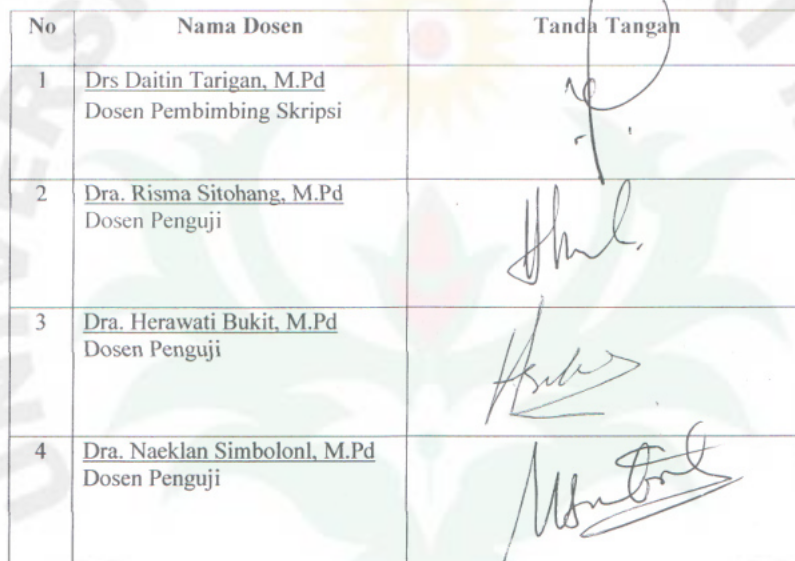 No Nama Dosen Tanda Tangan
1 Drs Daitin Tarigan, M.Pd
Dosen Pembimbing Skripsi
2 Dra. Risma Sitohang, M.Pd
Dosen Penguji
3 Dra. Herawati Bukit, M.Pd
Dosen Penguji
4 Dra. Naeklan Simbolonl, M.Pd
Dosen Penguji
UNIVERS